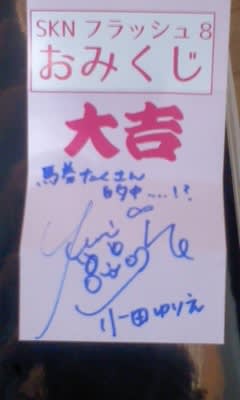 SKN フラッシュ 8
おみくじ
大吉
馬券たくさん
的中…!?
小田ゆりえ